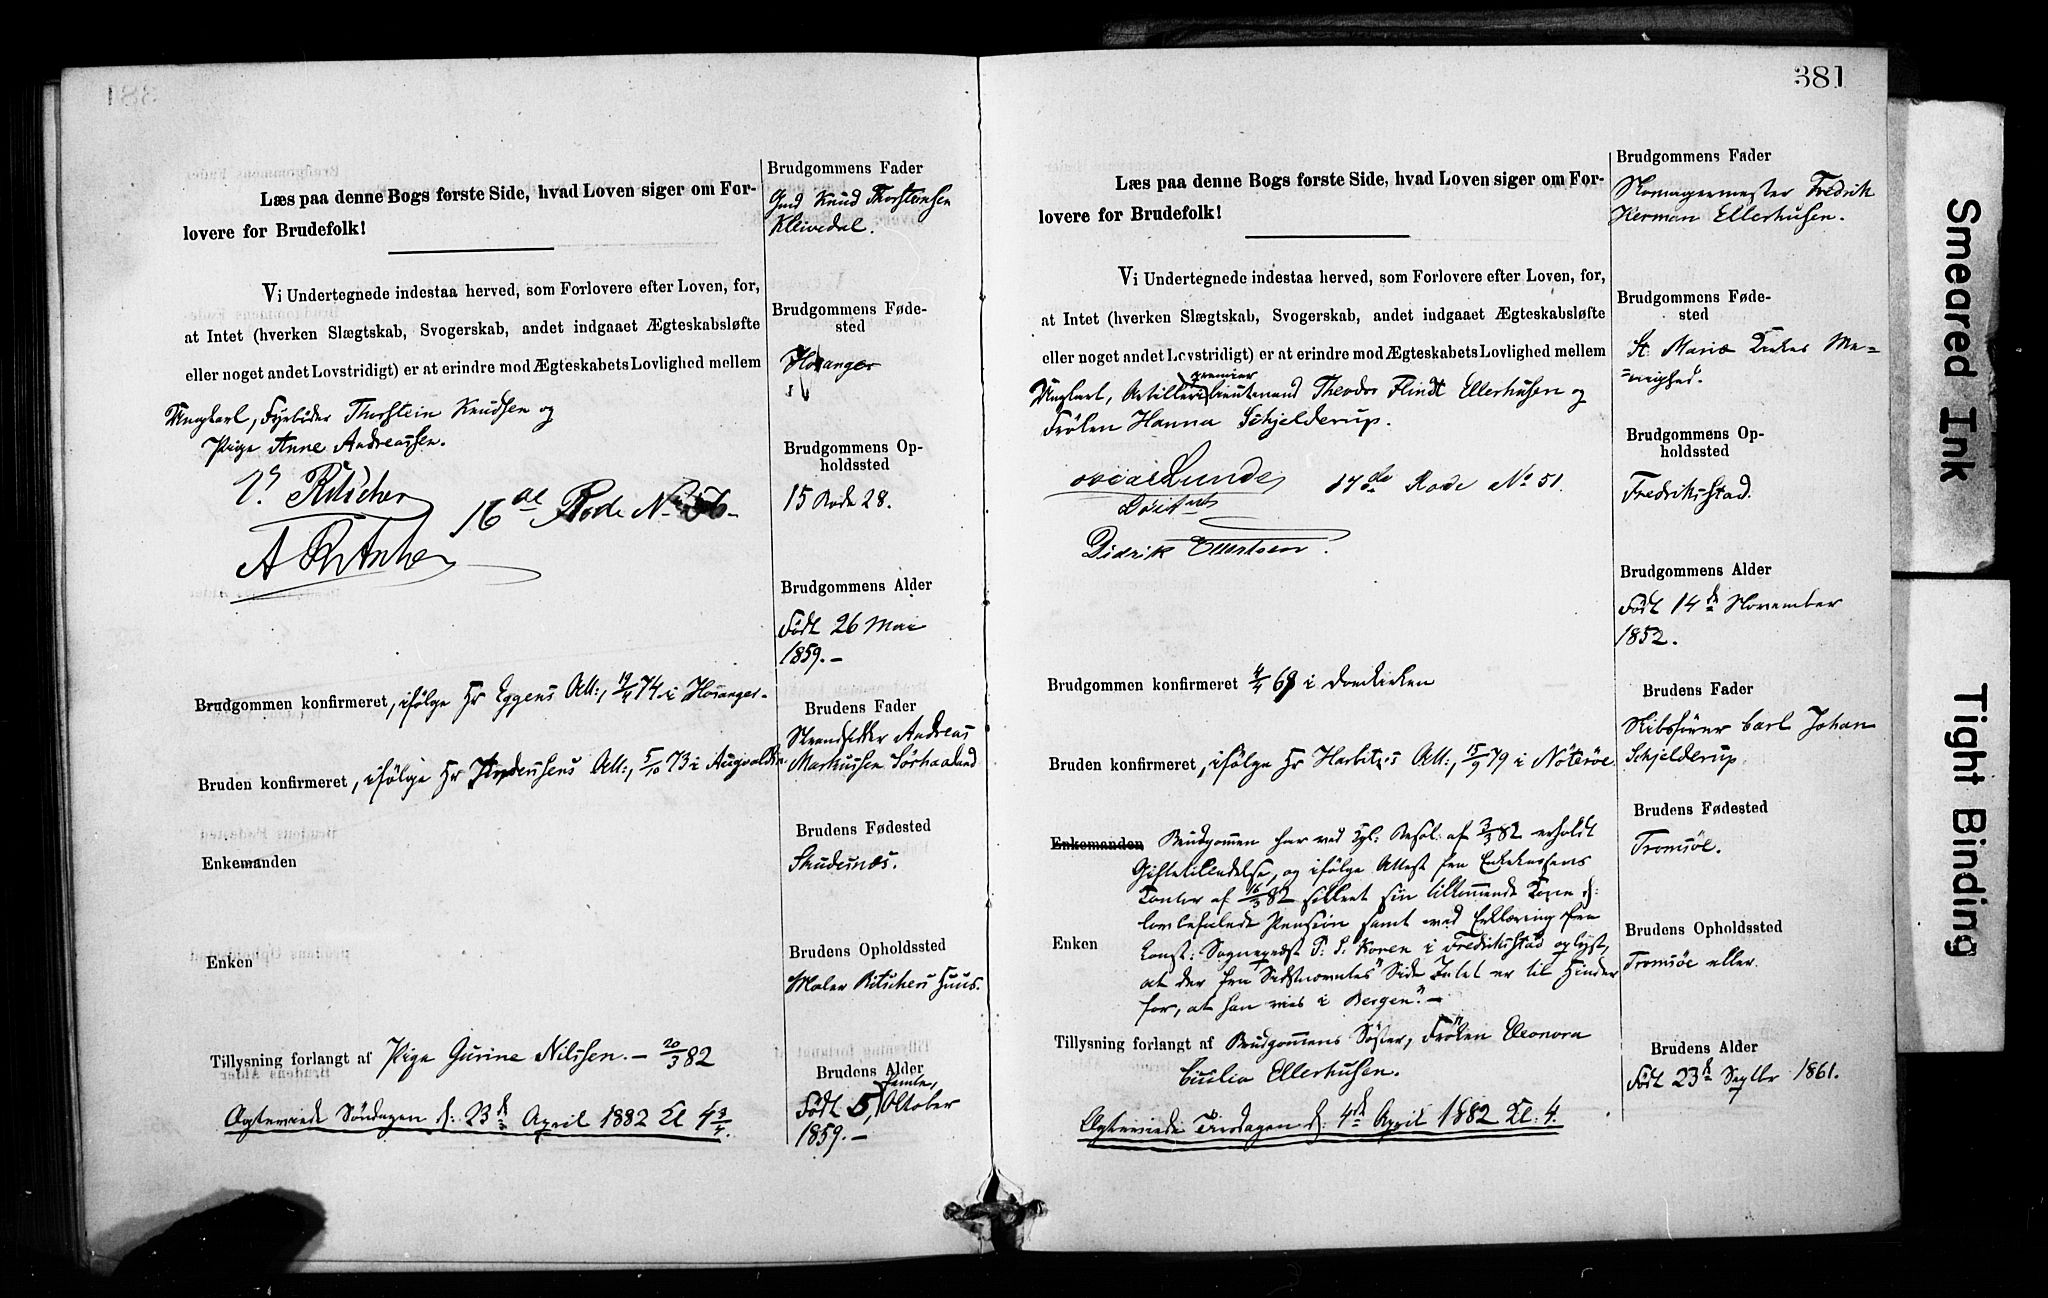 Læs paa denne Bogs første Side, hvad Loven siger om For-
lovere for Brudefolk!
Vi Undertegnede indestaa herved, som Forlovere efter Loven, for,
at Intet (hverken Slægtskab, Svogerskab, andet indgaaet Ægteskabsløfte
eller noget andet Lovstridigt) er at erindre mod Ægteskabets Lovlighed mellem
Ungkarl, Fyrbøder Thorstein Knudsen og
Pige Anne Andreassen.
V. Ritscher
A Ritscher
16de Rode No 56.
Brudgommen konfirmeret, ifølge Hr Eggens Att:, 19/4 74 i Hosanger.
Bruden konfirmeret, ifølge Hr Att:, 5/10 73 i
Enkemanden
Enken
Tillysning forlangt af Pige Gurine Nilssen. – 20/3 82
Ægteviede Søndagen d: 23de April 1882 Kl 4 3/4.
Brudgommens Fader
Gmd Knud Thorsteinsen
Kleivedal.
Brudgommens Føde-
sted
Hosanger
s
Brudgommens Op-
holdssted
15 Rode 28.
Brudgommens Alder
Født 26 Mai
1859. –
Brudens Fader
Strandsidder Andreas
Markussen Sørhaaland
Brudens Fødested
Skudesnæs.
Brudens Opholdssted
Maler Ritschers Huus.
Brudens Alder
Født 5, Oktober
femte,
1859. –
381
Læs paa denne Bogs første Side, hvad Loven siger om For-
lovere for Brudefolk!
Vi Undertegnede indestaa herved, som Forlovere efter Loven, for,
at Intet (hverken Slægtskab, Svogerskab, andet indgaaet Ægteskabsløfte
eller noget andet Lovstridigt) er at erindre mod Ægteskabets Lovlighed mellem
premier
Ungkarl, Artilleri Lieutenand Theodor Flindt Ellerhusen og
Frøken Hanna Schjelderup.
Lunde
17de Rode No 51.
Didrik
Brudgommen konfirmeret 4/4 69 i Domkirken
Bruden konfirmeret, ifølge Hr Harbitz's Att:, 15/9 79 i Nøterøe
Enkemanden Brudgommen har ved Kgl: Resol: af 3/3 82 erholdt
Giftetilladelse, og ifølge Attest fra Enkekassens
Kontor af 16/3 82 sikkret sin tilkommende Kone d:
lovbefalede Pension samt ved Erklæring fra
Enken Const: Sognepræst P. S. Koren i Fredriksstad oplyst,
at der fra "Sidstnævntes" Side Intet er til Hinder
for, at han vies i Bergen". –
Tillysning forlangt af Brudgommens Søster, Frøken Eleonora
Cecilia Ellerhusen.
Ægteviede Tirsdagen d: 4de April 1882 Kl: 4.
Brudgommens Fader
Skomagermester Fredrik
Herman Ellerhusen.
Brudgommens Føde-
sted
St. Mariæ Kirkes Me-
=nighed.
Brudgommens Op-
holdssted
Fredriksstad.
Brudgommens Alder
Født 14de November
1852.
Brudens Fader
Skibsfører Carl Johan
Schjelderup.
Brudens Fødested
Tromsøe.
Brudens Opholdssted
Tromsøe eller.
Brudens Alder
Født 23de Septbr 1861.
Smeared Ink
Tight Binding